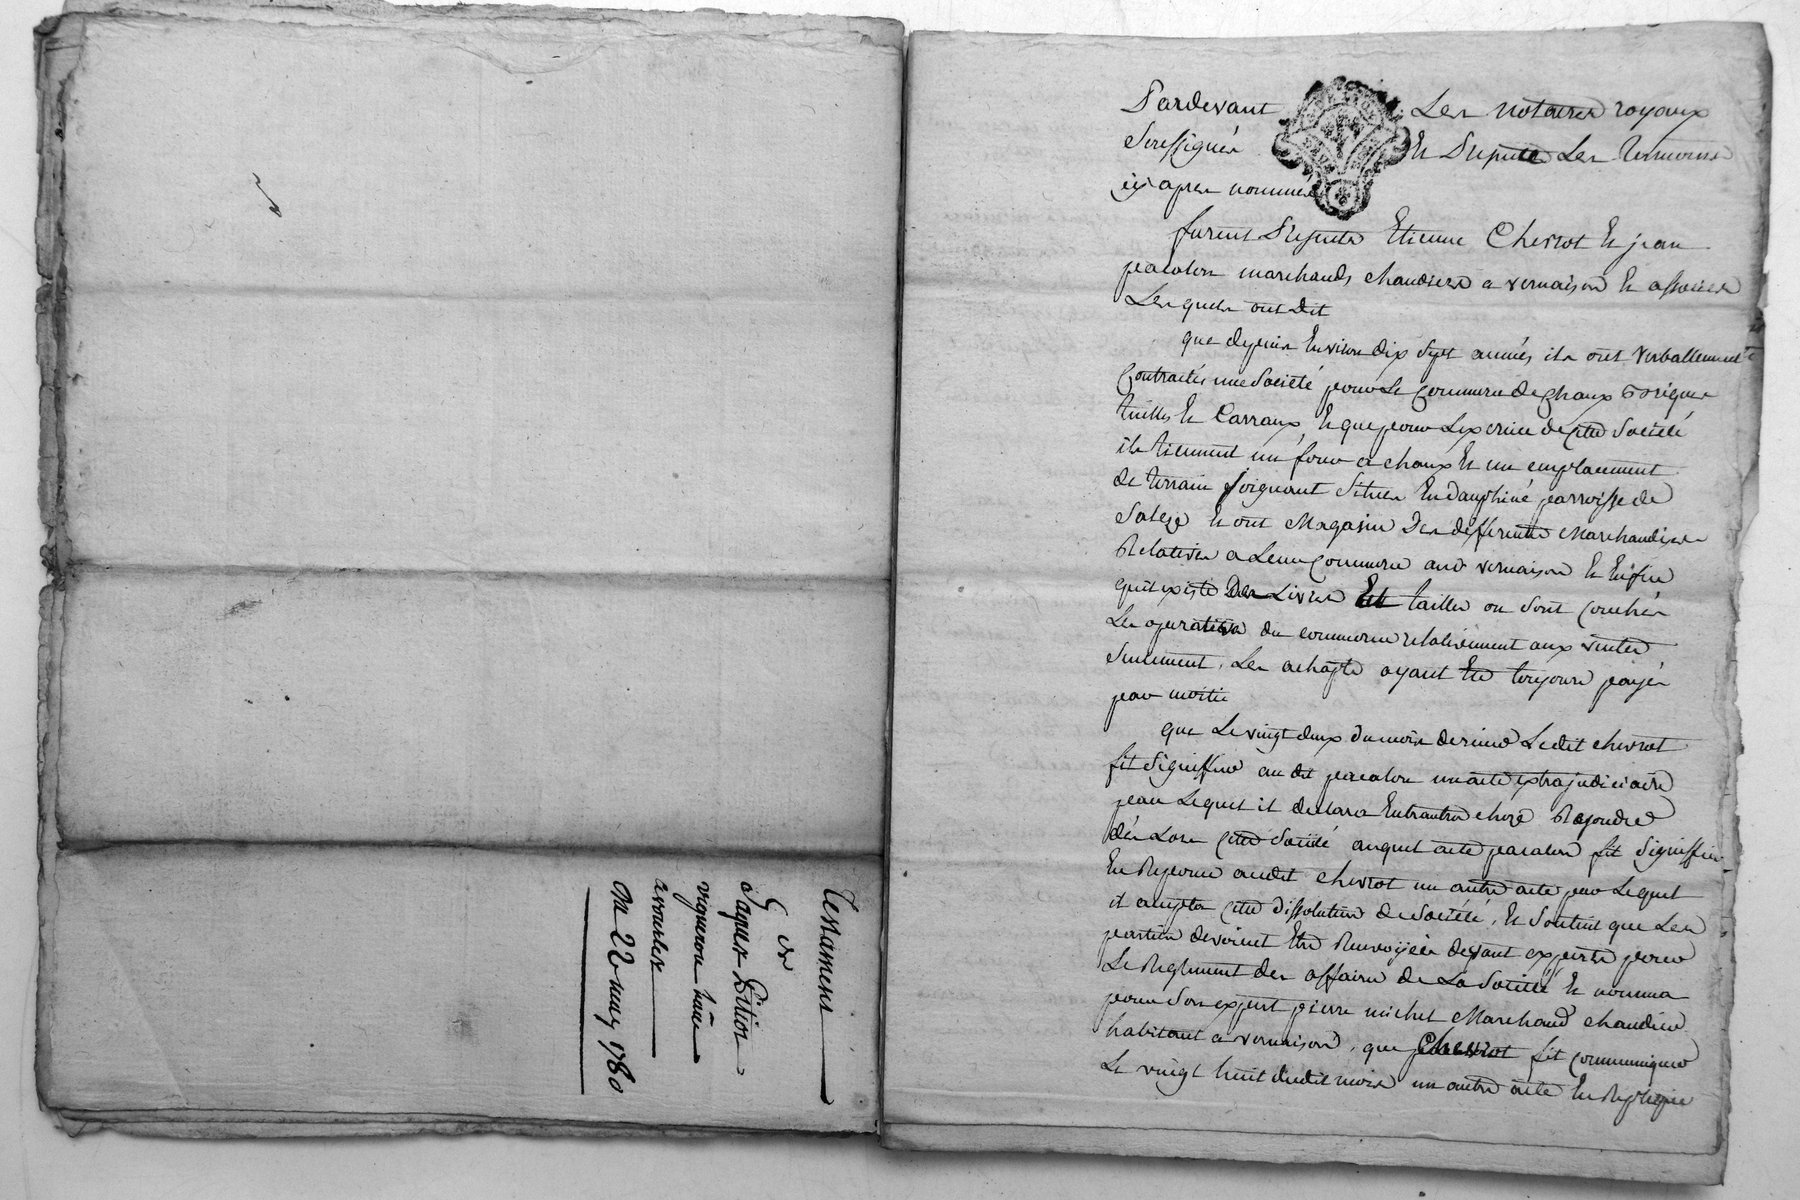 Testament
De
Jaques Pitiot
vigneron 
du 22 may 1780
Pardevant Les notaires royaux
Soussignés Et Présents Les temoins
cy apres nommés
furent Présents Etienne Chevrot Et jean
marchands chaudiers a vernaison Et associés
Lesquels ont dit
que depuis Environ dix Sept années ils ont verballement
Contractés une Société pour Le Commerce de Chaux briques
tuilles Et Carraux, Et que pour Lexercice de cette Société
ils tiennent un four a chaux Et un emplacement
de terrain joignant Situés En dauphiné parroisse de
Et ont Magasin Des differentes Marchandises
Relatives a Leur Commerce aud vernaison Et Enfin
quil existe Des Livres Et tailles ou Sont Couchés
Les operations du commerce relativement aux ventes
Seulement, Les achapts ayant Eté toujours payés
par moitié
que Le vingt deux du mois dernier Ledit chevrot
fit Signiffier au dit un acte extrajudiciaire
par Lequel il declara Entrautre chose
dès Lors cette Société auquel acte fit Signiffier
En Reponse audit chevrot un autre acte par Lequel
il accepta cette dissolution de Société, Et Soutint que Les
parties devoient Etre Renvoyées devant experts pour
Le Reglement des affaires de La Société Et nomma
pour Son expert pierre michel Marchand chaudier
habitant a vernaison, que Chevrot fit communiquer
Le vingt huit dudit mois un autre acte En Replique